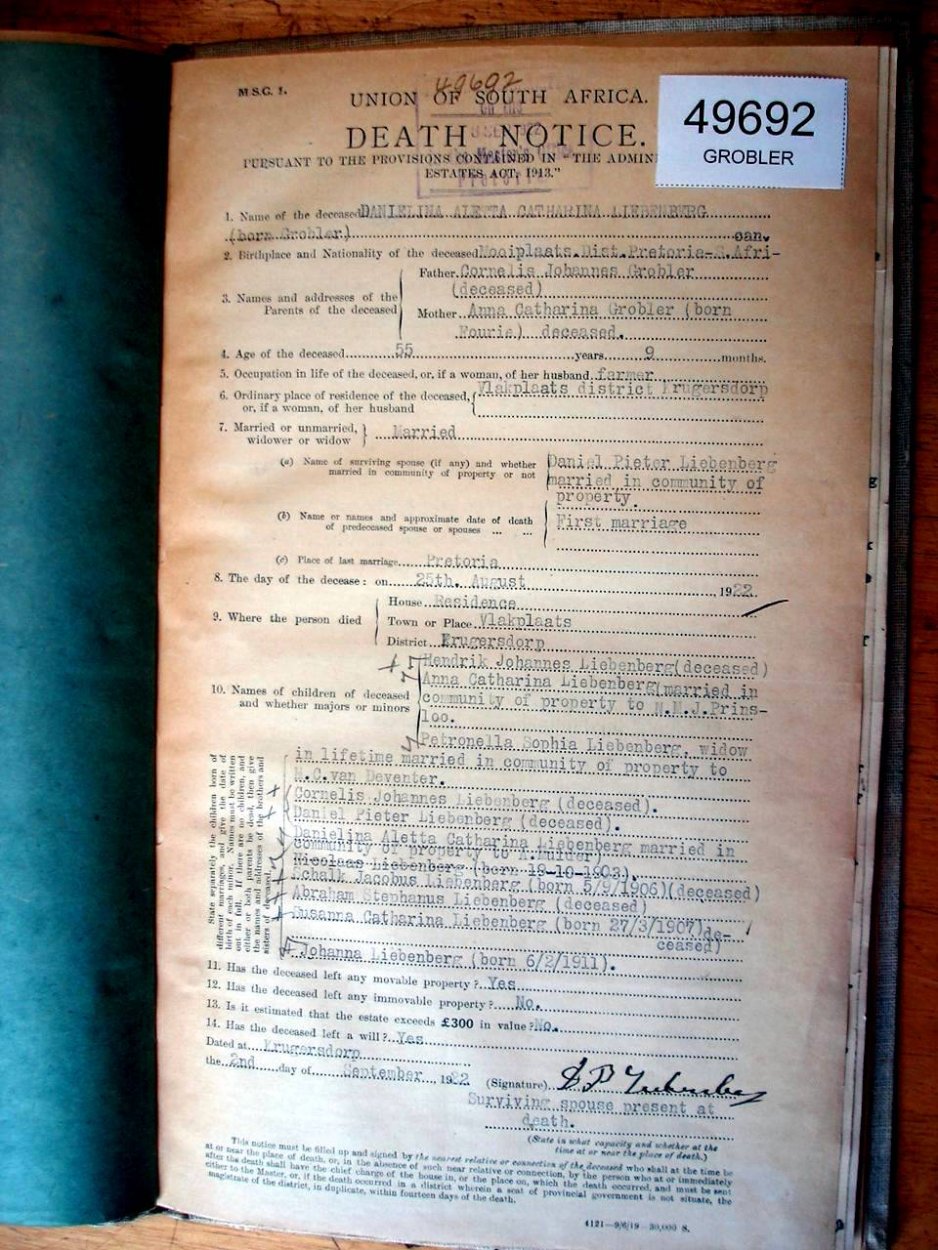 M S.C. 1.
49692
UNION OF SOUTH AFRICA.
49692
GROBLER
DEATH NOTICE.
PURSUANT TO THE PROVISIONS CONTAINED IN "THE ADMIN
ESTATES ACT, 1913."
1. Name of the deceased DANIELINA ALETTA CATHARINA LIEBENBERG
(born Grobler) can.
2. Birthplace and Nationality of the deceased Mooiplaats Dist. Pretoria-S.Afri-
3. Names and addresses of the Parents of the deceased
Father Cornelis Johannes Grobler
(deceased)
Mother Anna Catharina Grobler (born
Fourie) deceased.
4. Age of the deceased 55 years 9 months.
5. Occupation in life of the deceased, or, if a woman, of her husband farmer
6. Ordinary place of residence of the deceased, Vlakplaats district Krugersdorp
or, if a woman, of her husband
7. Married or unmarried, widower or widow } Married
(a) Name of surviving spouse (if any) and whether married in community of property or not
Daniel Pieter Liebenberg
married in community of
property.
(b) Name or names and approximate date of death of predeceased spouse or spouses ... ...
First marriage
(c) Place of last marriage Pretoria
8. The day of the decease: on 25th. August 1922.
9. Where the person died
House Residence
Town or Place Vlakplaats
District Krugersdorp
10. Names of children of deceased and whether majors or minors
Hendrik Johannes Liebenberg(deceased)
Anna Catharina Liebenberg(married in
community of property to N.M.J.Prins-
loo.
Petronella Sophia Liebenberg, widow
in lifetime married in community of property to
M.C.van Deventer.
Cornelis Johannes Liebenberg (deceased).
Daniel Pieter Liebenberg (deceased).
Danielina Aletta Catharina Liebenberg married in
community of property to A.Mulder)
Nicolaas Liebenberg (born 19-10-1903).
Schalk Jacobus Liebenberg (born 5/9/1906)(deceased)
Abraham Stephanus Liebenberg (deceased)
Susanna Catharina Liebenberg (born 27/3/1907)de-
ceased)
Johanna Liebenberg (born 6/2/1911).
State separately the children born of
different marriages, and give the date of
birth of each minor. Names must be written
out in full. If there are no children, and
either or both parents be dead, then give
the names and addresses of the brothers and
sisters of deceased.
11. Has the deceased left any movable property? Yes
12. Has the deceased left any immovable property? No.
13. Is it estimated that the estate exceeds £300 in value? No.
14. Has the deceased left a will? Yes
Dated at Krugersdorp
the 2nd day of September, 1922
(Signature) D P Liebenberg
Surviving spouse present at
death.
(State in what capacity and whether at the
time at or near the place of death.)
This notice must be filled up and signed by the nearest relative or connection of the deceased who shall at the time be
at or near the place of death, or, in the absence of such near relative or connection, by the person who at or immediately
after the death shall have the chief charge of the house in, or the place on, which the death occurred, and must be sent
either to the Master, or, if the death occurred in a district wherein a seat of provincial government is not situate, the
magistrate of the district, in duplicate, within fourteen days of the death.
4121—9/6/19—30,000 S.